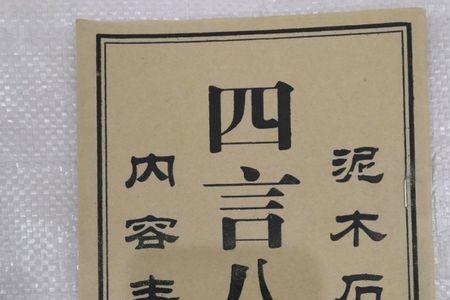 泥木石
四言八
内容